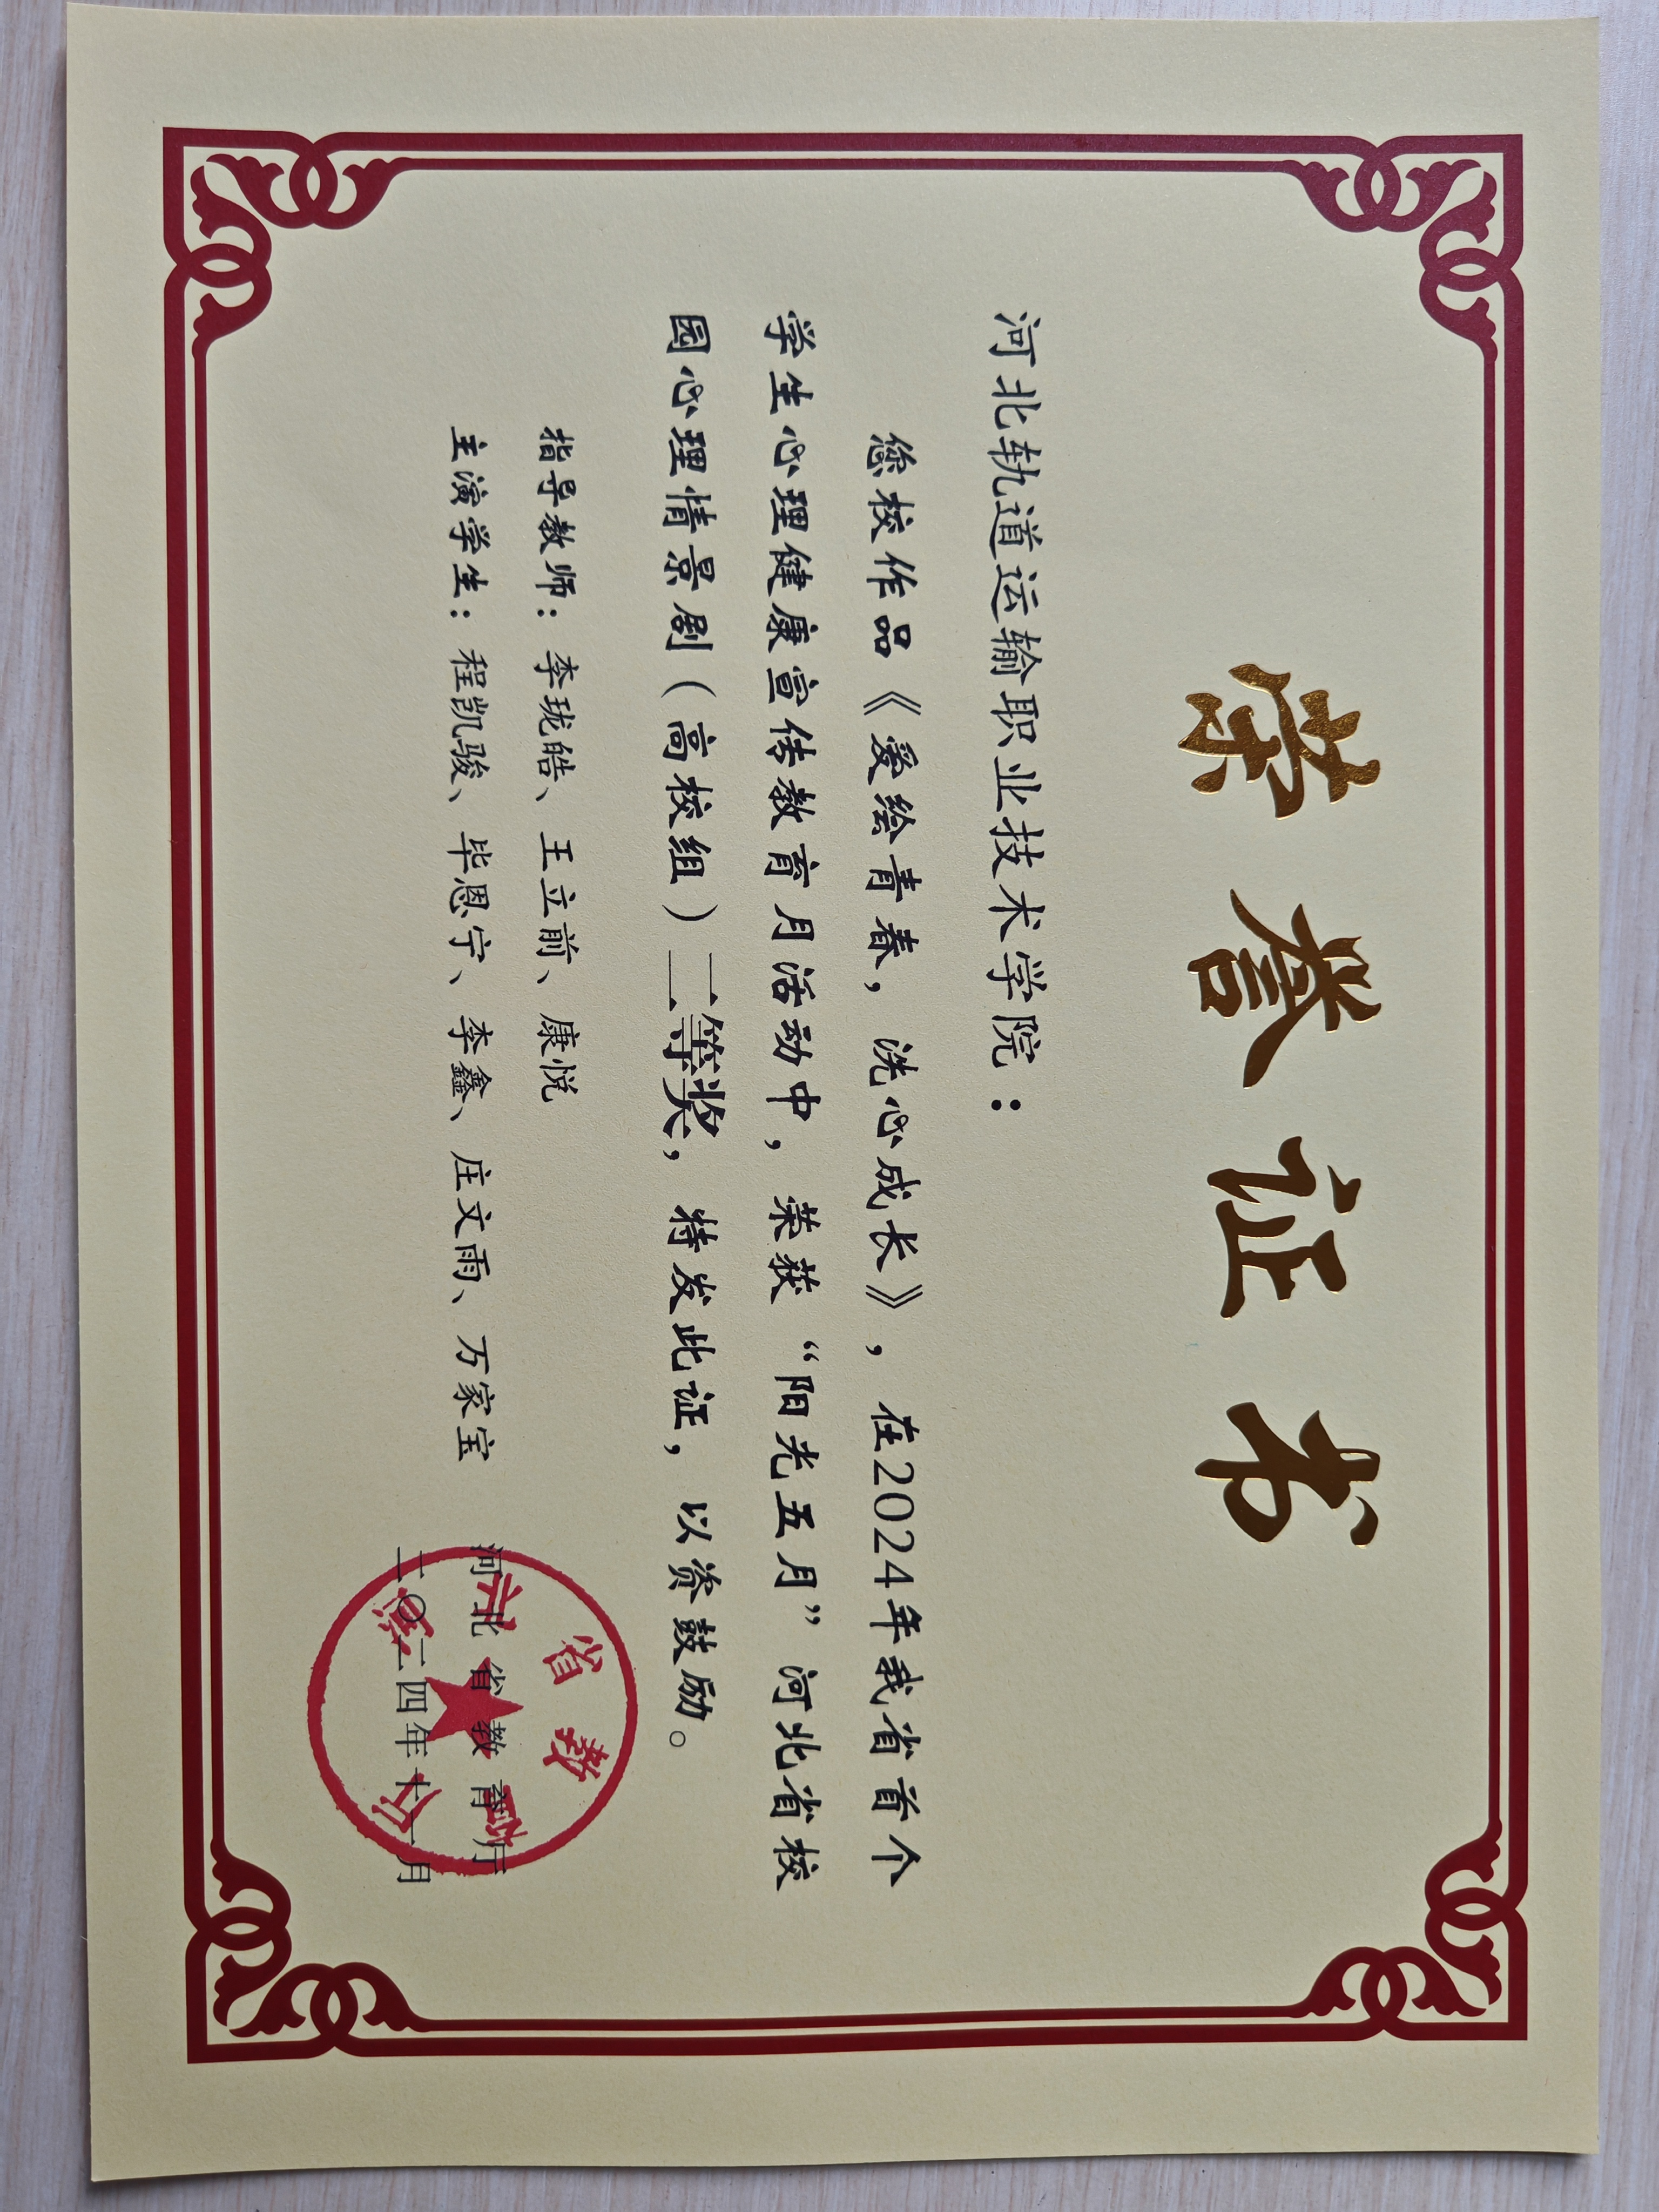 荣誉证书
河北轨道运输职业技术学院：
您校作品《爱绘青春，洗心成长》，在2024年我省首个
学生心理健康宣传教育月活动中，荣获“阳光五月”河北省校
园心理情景剧（高校组）二等奖，特发此证，以资鼓励。
指导教师：李珑皓、王立前、康悦
主演学生：程凯骏、毕恩宁、李鑫、庄文雨、万家宝
河北省教育厅
二〇二四年十一月
河北省教育厅